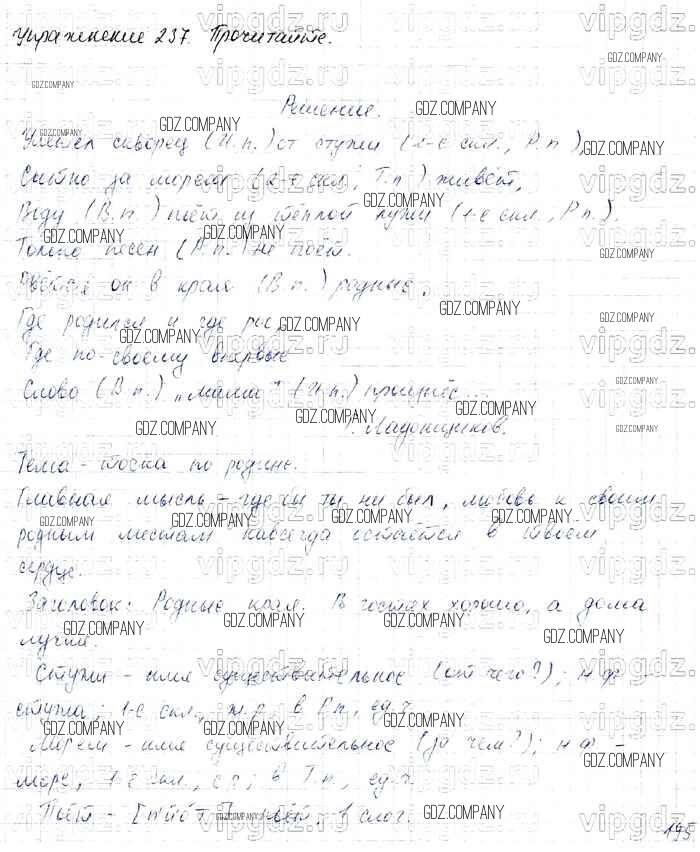 Упражнение 237. Прочитайте.
Решение.
Улетел скворец (И.п.) от стужи (1-е скл., Р.п.),
Сытно за морем (2-е скл., Т.п.) живёт,
Воду (В.п.) пьёт из тёплой лужи (1-е скл., Р.п.),
Только песен (Р.п.) не поёт.
он в края (В.п.) родные,
Где родился и где рос,
Где по-своему впервые
Слово (В.п.) "мама" (И.п.) произнёс.
Ладонщиков.
Тема - тоска по родине.
Главная мысль - где бы ты ни был, любовь к своим
родным местам навсегда остаётся в твоём
сердце.
Заголовок: Родные края. В гостях хорошо, а дома
лучше.
Стужи - имя существительное (от чего?); н.ф. -
стужа; 1-е скл., ж.р., в Р.п., ед.ч.
Морем - имя существительное (за чем?); н.ф. -
море, скл., с.р.; в Т.п., ед.ч.
Поёт - 1 слог.
195
GDZ.COMPANY
vipgdz.ru